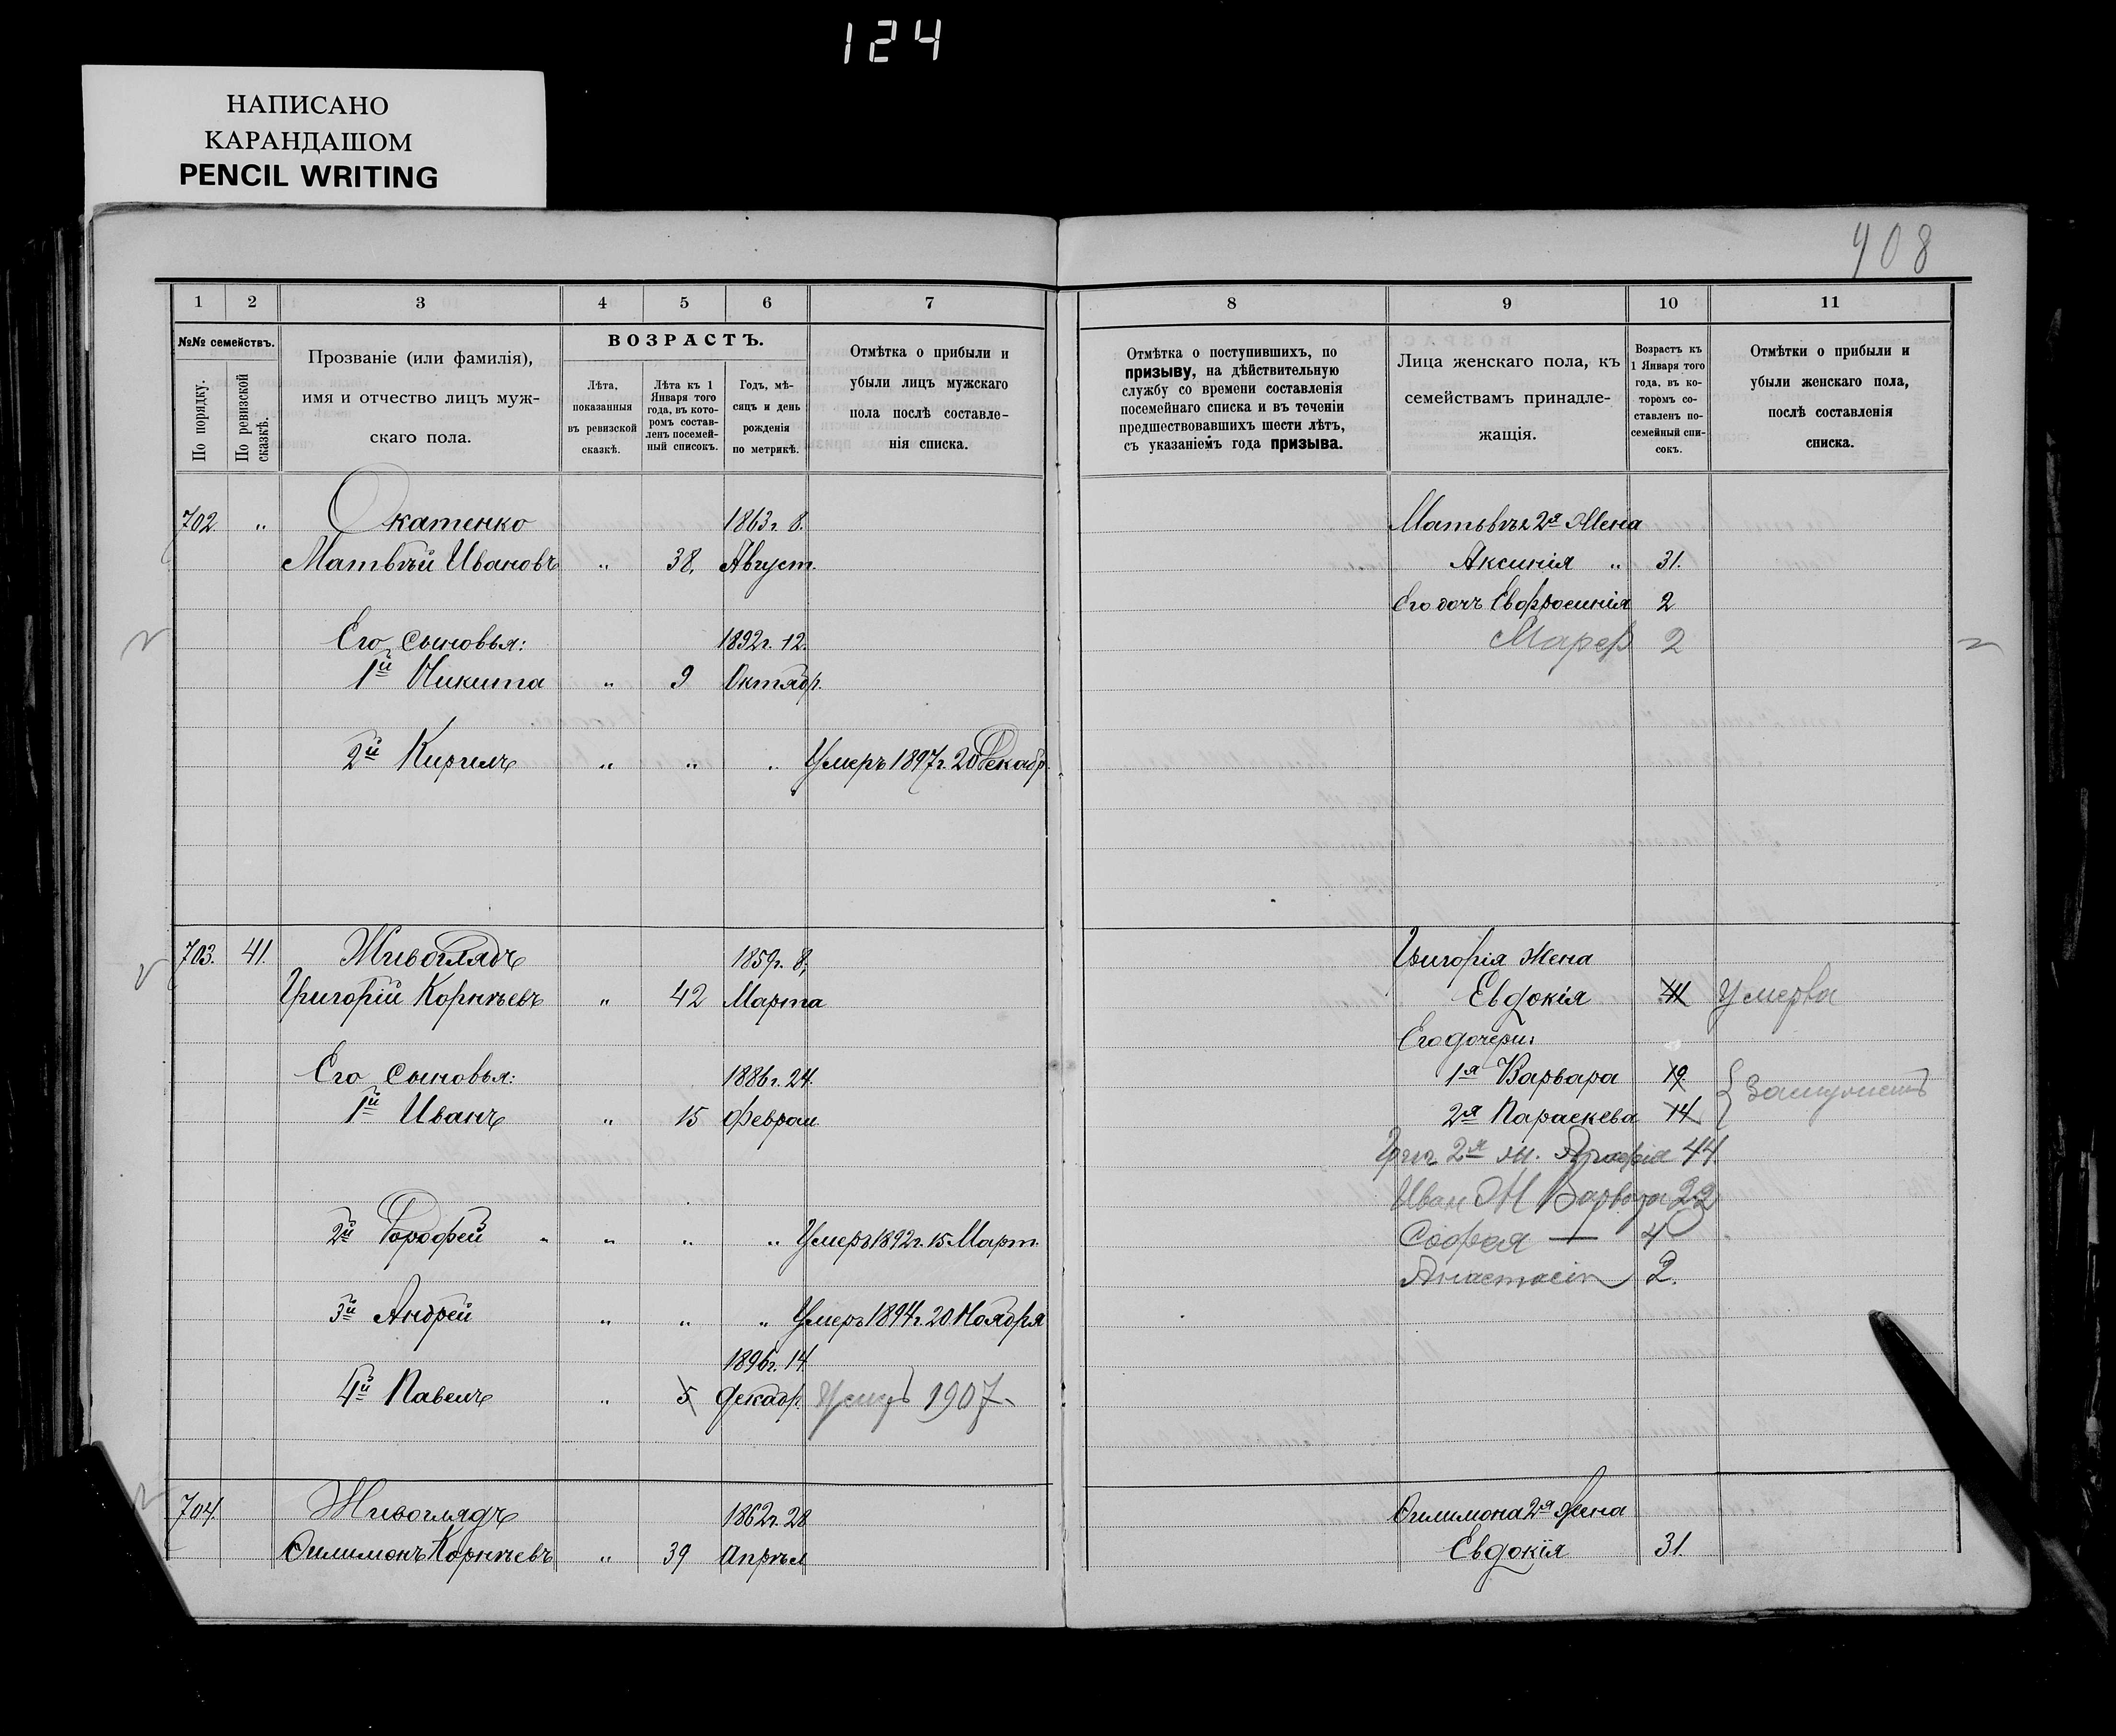 124
НАПИСАНО
КАРАНДАШОМ
PENCIL WRITING
908
1 2 3 4 5 6 7 8 9 10 11
№№ семействъ.
По порядку.
По ревизской сказкѣ.
Прозваніе (или фамилія),
имя и отчество лицъ муж-
скаго пола.
ВОЗРАСТЪ.
Лѣта,
показанныя
въ ревизской
сказкѣ.
Лѣта къ 1
Января того
года, въ кото-
ромъ состав-
ленъ посемей-
ный списокъ.
Годъ, мѣ-
сяцъ и день
рожденія
по метрикѣ.
Отмѣтка о прибыли и
убыли лицъ мужскаго
пола послѣ составле-
нія списка.
Отмѣтка о поступившихъ, по
призыву, на дѣйствительную
службу со времени составленія
посемейнаго списка и въ теченіи
предшествовавшихъ шести лѣтъ,
съ указаніемъ года призыва.
Лица женскаго пола, къ
семействамъ принадле-
жащія.
Возрастъ къ
1 Января того
года, въ ко-
торомъ со-
ставленъ по-
семейный спи-
сокъ.
Отмѣтки о прибыли и
убыли женскаго пола,
послѣ составленія
списка.
702 " Окатенко 1863г. 8. Матвѣя 2я Жена
Матвѣй Ивановъ " 38. Август. Аксинія " 31.
Его дочь Евфросинія 2
Его сыновья: 1892г. 12. 2
1й Никита " 9 Октябр.
2й Кирилъ " " " Умеръ 1897г. 20 Декабр.
703. 41. Живоглядъ 1859г. 8. Григорія Жена
Григорій Корнѣевъ " 42 Марта Евдокія 41 Умерла
Его дочери:
Его сыновья: 1886г. 24. 1я Варвара 19
1й Иванъ " 15 Феврал. 2я Параскева 14
Григ 2я ж. 44
Иван Ж Варвара 22
2й Дорофей " " " " Умеръ 1892г. 15 Март. Софія — 4
Анастасія 2.
3й Андрей " " " Умеръ 1894г. 20 Ноября
1896г. 14
4й Павелъ " 5 Декабр. Умеръ 1907
704. Живоглядъ 1862г. 28 Филимона 2я Жена
Филимонъ Корнѣевъ " 39 Апрѣл Евдокія 31.